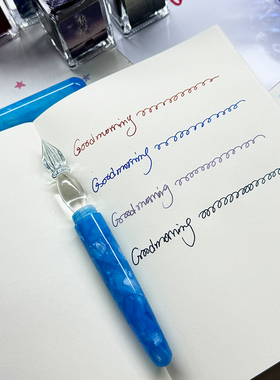 Goodmorning
Goodmorning
Goodmorning
Goodmorning